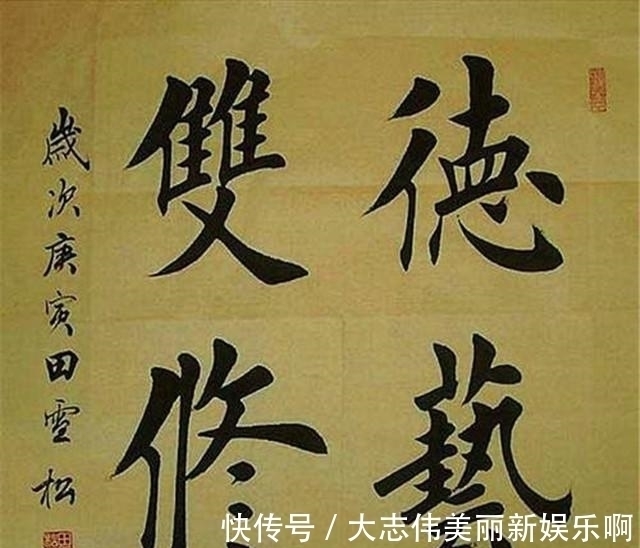 德藝
雙修
歲次庚寅田雪松
快传号/大志伟美丽新娱乐啊